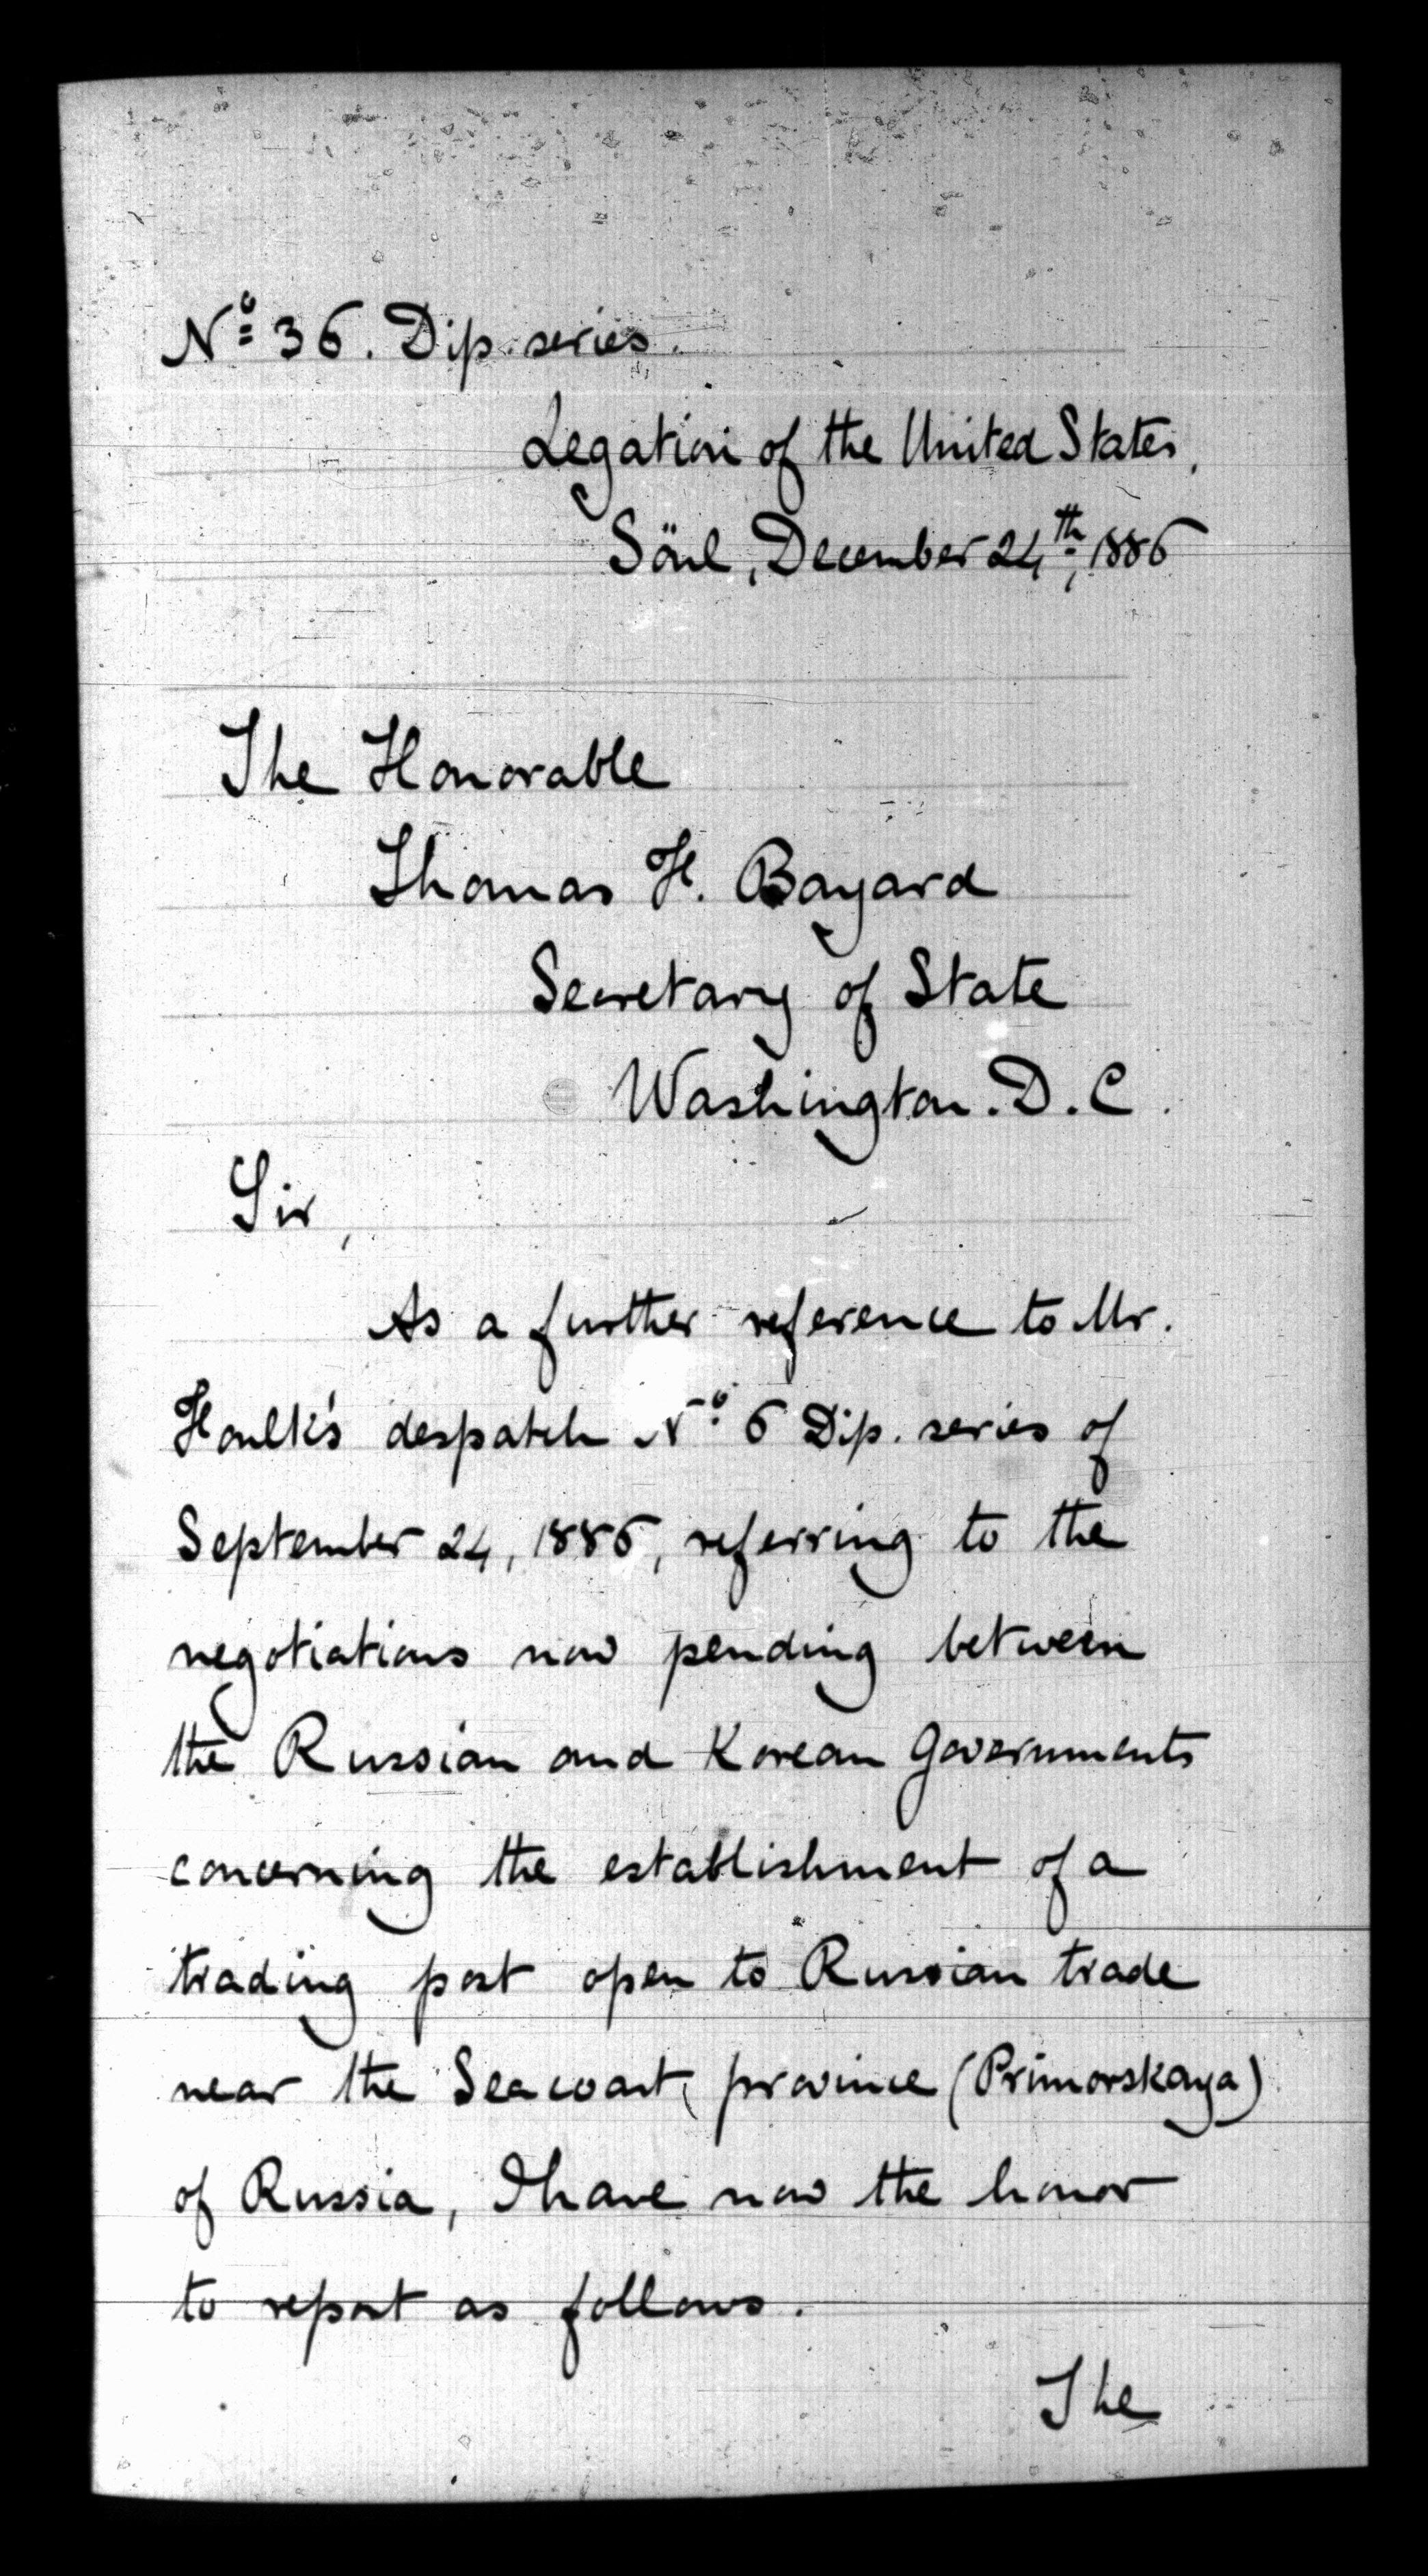 Nº 36. Dip. series.
Legation of the United States,
Söul, December 24th, 1886
The Honorable
Thomas F. Bayard
Secretary of State
Washington. D. C.
Sir,
As a further reference to Mr.
Foulk's despatch Nº 6 Dip. series of
September 24, 1886, referring to the
negotiations now pending between
the Russian and Korean Governments
concerning the establishment of a
trading post open to Russian trade
near the Seacoast province (Primorskaya)
of Russia, I have now the honor
to report as follows.
The